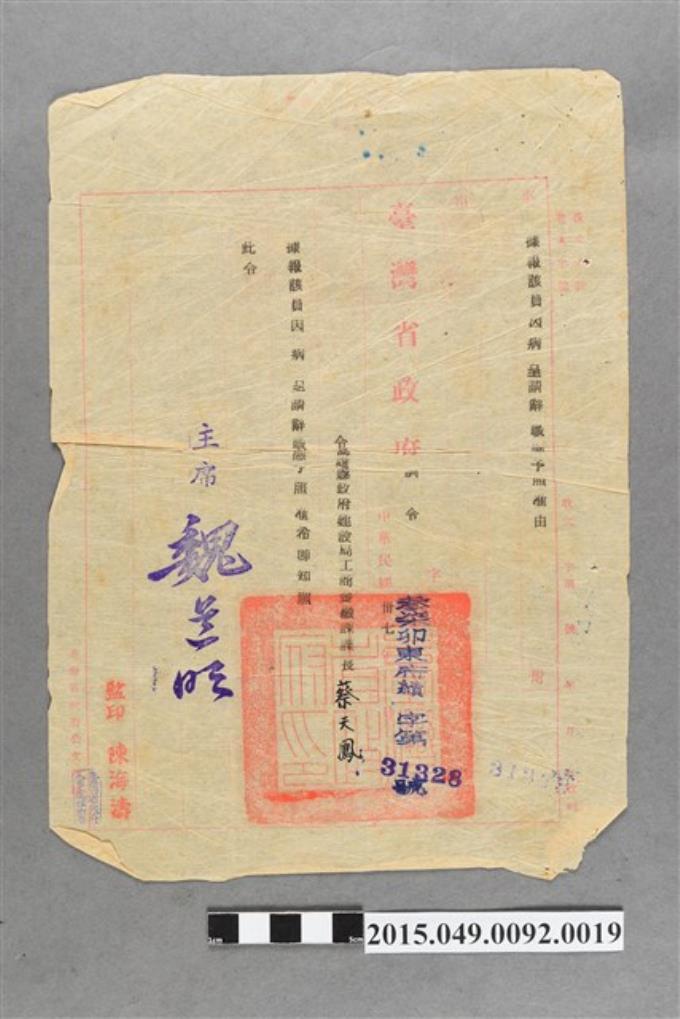 據報該員因病呈請辭職應予照准由
臺灣省政府
訓令
中華民國
卅七
字
卯東府績一字第
31328
號
令高雄縣政府建設局工商管理課課長
蔡天鳳
據報該員因病呈請辭職應予照准希即知照
此令
主席
魏道明
監印
陳海濤
附
號
年
月
1cm
5cm
2015.049.0092.0019